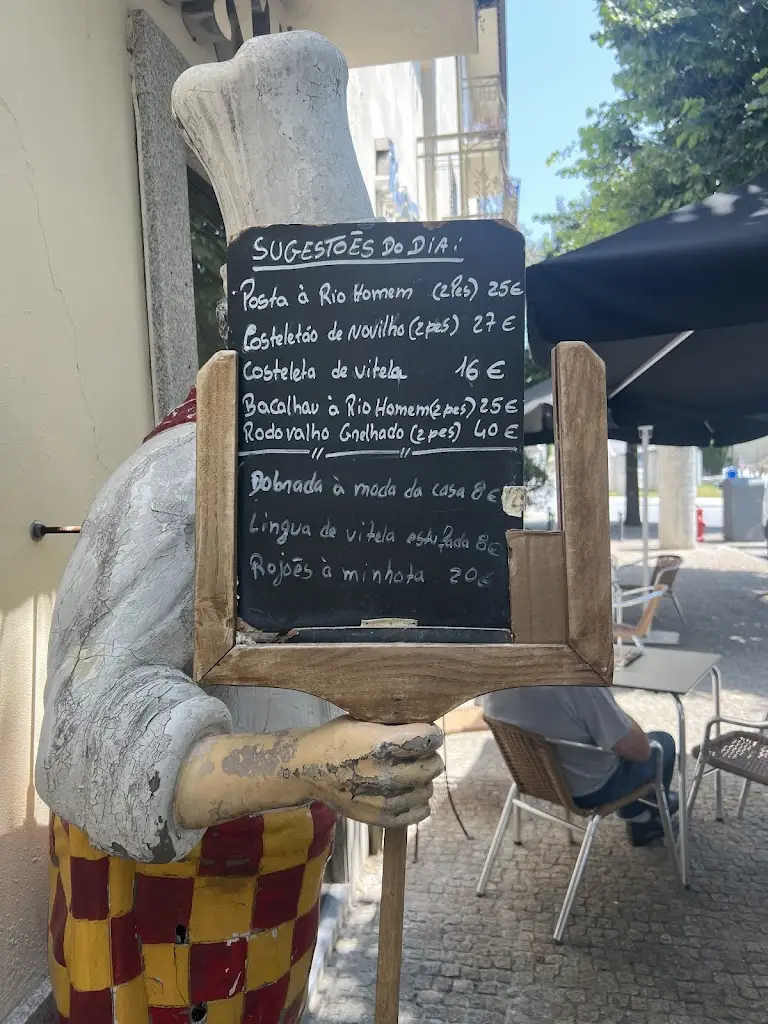 SUGESTÕES DO DIA:
Posta à Rio Homem (2Pes) 25€
Costeletão de Novilho (2pes) 27€
Costeleta de vitela 16€
Bacalhau à Rio Homem (2pes) 25€
Rodovalho Grelhado (2pes) 40€
Dobrada à moda da casa 8€
Lingua de vitela estufada 8€
Rojões à minhota 20€